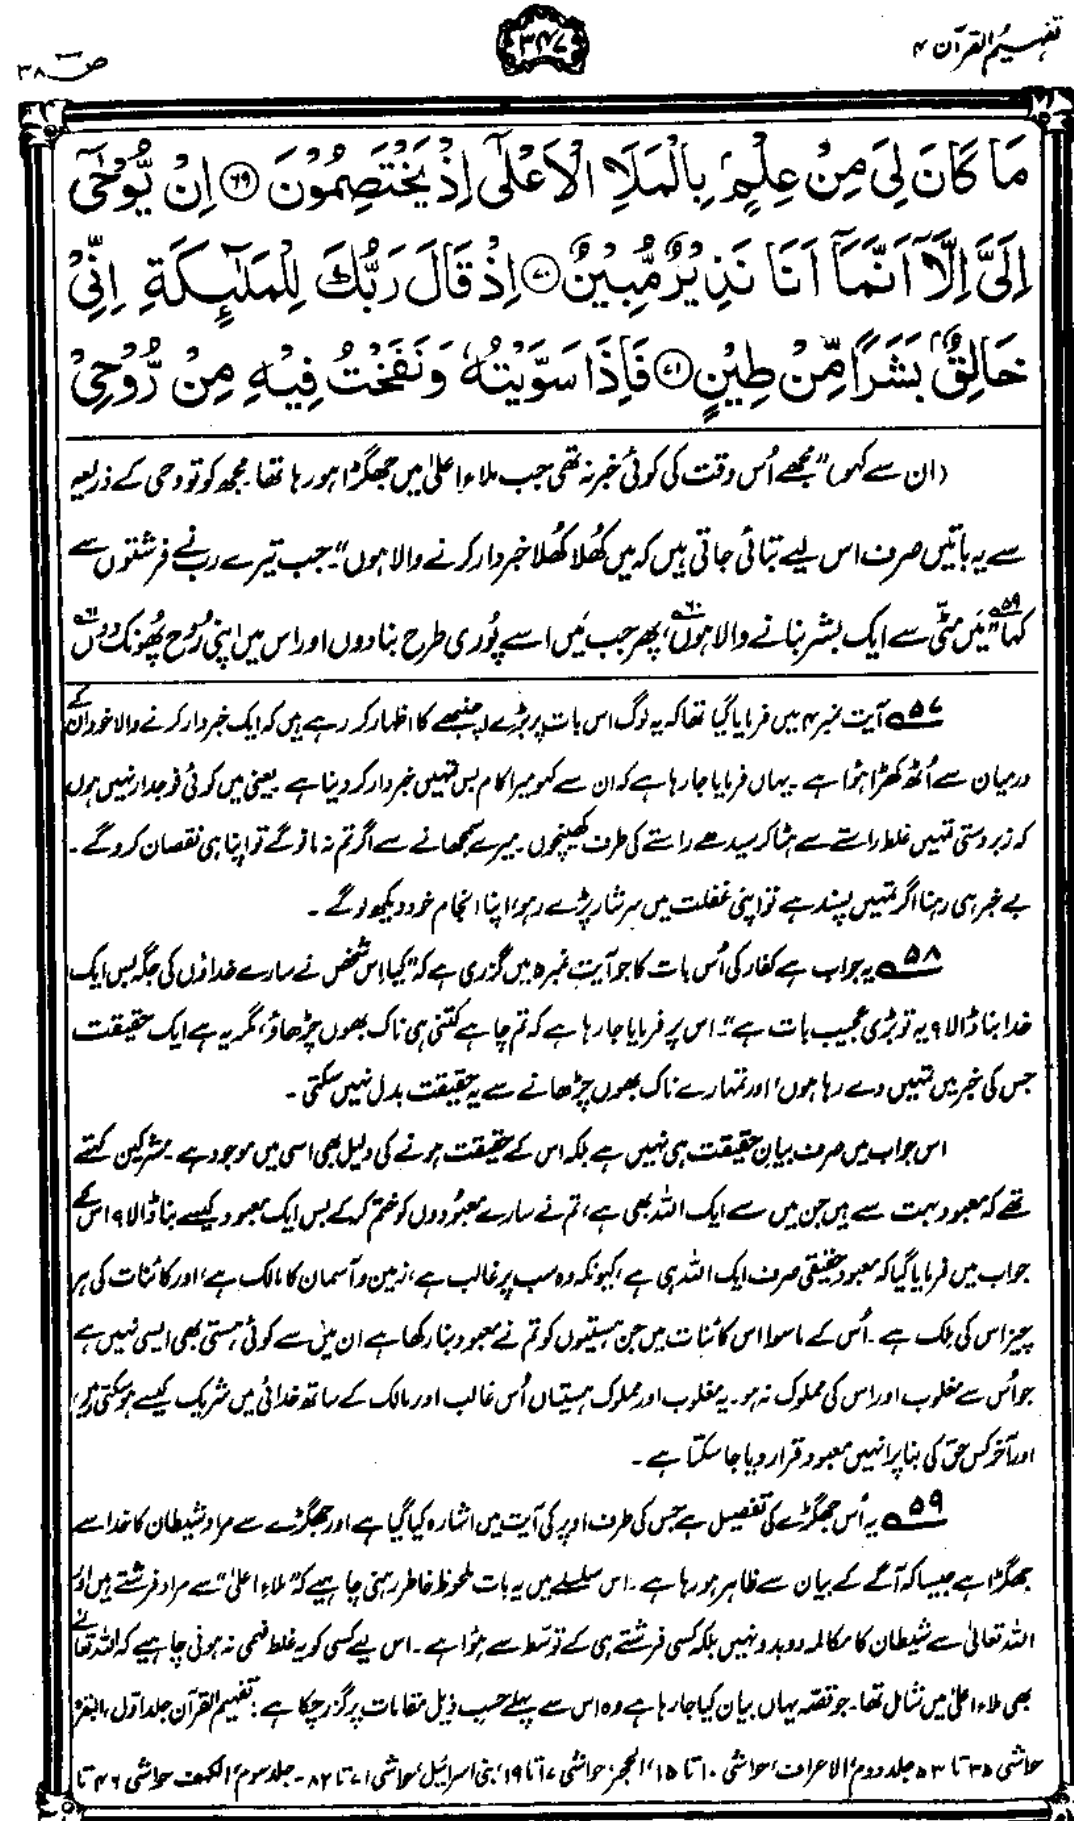 تفہیم القرآن ۴
۳۴۷
ص ۳۸
مَا كَانَ لِيَ مِنْ عِلْمٍۢ بِالْمَلَاِ الْاَعْلٰۤى اِذْ يَخْتَصِمُوْنَ ﴿۶۹﴾ اِنْ يُّوْحٰۤى
اِلَيَّ اِلَّاۤ اَنَّمَاۤ اَنَا نَذِيْرٌ مُّبِيْنٌ ﴿۷۰﴾ اِذْ قَالَ رَبُّكَ لِلْمَلٰٓئِكَةِ اِنِّيْ
خَالِقٌۢ بَشَرًا مِّنْ طِيْنٍ ﴿۷۱﴾ فَاِذَا سَوَّيْتُهٗ وَنَفَخْتُ فِيْهِ مِنْ رُّوْحِيْ
(ان سے کہو) "مجھے اُس وقت کی کوئی خبر نہ تھی جب ملاءِ اعلیٰ میں جھگڑا ہو رہا تھا۔ مجھ کو تو وحی کے ذریعہ
سے یہ باتیں صرف اس لیے بتائی جاتی ہیں کہ میں کھُلا کھُلا خبردار کرنے والا ہوں"۔ جب تیرے رب نے فرشتوں سے
کہا۵۹ "میں مٹی سے ایک بشر بنانے والا ہوں۶۰، پھر جب میں اسے پُوری طرح بنا دوں اور اس میں اپنی رُوح پھُونک دوں۶۱
۵۷ آیت نمبر ۴ میں فرمایا گیا تھا کہ یہ لوگ اس بات پر بڑے اچنبھے کا اظہار کر رہے ہیں کہ ایک خبردار کرنے والا خود ان کے
درمیان سے اُٹھ کھڑا ہوا ہے۔ یہاں فرمایا جا رہا ہے کہ ان سے کہو میرا کام بس تمہیں خبردار کر دینا ہے۔ یعنی میں کوئی فوجدار نہیں ہوں
کہ زبردستی تمہیں غلط راستے سے ہٹا کر سیدھے راستے کی طرف کھینچوں۔ میرے سمجھانے سے اگر تم نہ مانو گے تو اپنا ہی نقصان کرو گے۔
بے خبر ہی رہنا اگر تمہیں پسند ہے تو اپنی غفلت میں سرشار پڑے رہو، اپنا انجام خود دیکھ لو گے۔
۵۸ یہ جواب ہے کفار کی اُس بات کا جو آیت نمبر ۵ میں گزری ہے کہ "کیا اِس شخص نے سارے خداؤں کی جگہ بس ایک
خدا بنا ڈالا؟ یہ تو بڑی عجیب بات ہے"۔ اس پر فرمایا جا رہا ہے کہ تم چاہے کتنی ہی ناک بھوں چڑھاؤ، مگر یہ ہے ایک حقیقت
جس کی خبر میں تمہیں دے رہا ہوں، اور تمہارے ناک بھوں چڑھانے سے یہ حقیقت بدل نہیں سکتی۔
اس جواب میں صرف بیانِ حقیقت ہی نہیں ہے بلکہ اس کے حقیقت ہونے کی دلیل بھی اسی میں موجود ہے۔ مشرکین کہتے
تھے کہ معبود بہت سے ہیں جن میں سے ایک اللہ بھی ہے، تم نے سارے معبُودوں کو ختم کر کے بس ایک معبود کیسے بنا ڈالا؟ اس کے
جواب میں فرمایا گیا کہ معبودِ حقیقی صرف ایک اللہ ہی ہے، کیونکہ وہ سب پر غالب ہے، زمین و آسمان کا مالک ہے، اور کائنات کی ہر
چیز اس کی مِلک ہے۔ اُس کے ماسوا اس کائنات میں جن ہستیوں کو تم نے معبود بنا رکھا ہے ان میں سے کوئی ہستی بھی ایسی نہیں ہے
جو اُس سے مغلوب اور اس کی مملوک نہ ہو۔ یہ مغلوب اور مملوک ہستیاں اُس غالب اور مالک کے ساتھ خدائی میں شریک کیسے ہو سکتی ہیں،
اور آخر کس حق کی بنا پر انہیں معبود قرار دیا جا سکتا ہے۔
۵۹ یہ اُس جھگڑے کی تفصیل ہے جس کی طرف اوپر کی آیت میں اشارہ کیا گیا ہے اور جھگڑے سے مراد شیطان کا خدا سے
جھگڑا ہے جیسا کہ آگے کے بیان سے ظاہر ہو رہا ہے۔ اس سلسلے میں یہ بات ملحوظِ خاطر رہنی چاہیے کہ "ملاءِ اعلیٰ" سے مراد فرشتے ہیں اور
اللہ تعالیٰ سے شیطان کا مکالمہ دو بدو نہیں بلکہ کسی فرشتے ہی کے توسّط سے ہوا ہے۔ اس لیے کسی کو یہ غلط فہمی نہ ہونی چاہیے کہ اللہ تعالیٰ
بھی ملاءِ اعلیٰ میں شامل تھا۔ جو قصّہ یہاں بیان کیا جا رہا ہے وہ اس سے پہلے حسبِ ذیل مقامات پر گزر چکا ہے: تفہیم القرآن جلد اوّل، البقرہ
حواشی ۳۵ تا ۵۳۔ جلد دوم، الاعراف، حواشی ۱۰ تا ۱۵، الحجر، حواشی ۱۷ تا ۱۹، بنی اسرائیل، حواشی ۷۱ تا ۸۲۔ جلد سوم، الکہف حواشی ۴۶ تا